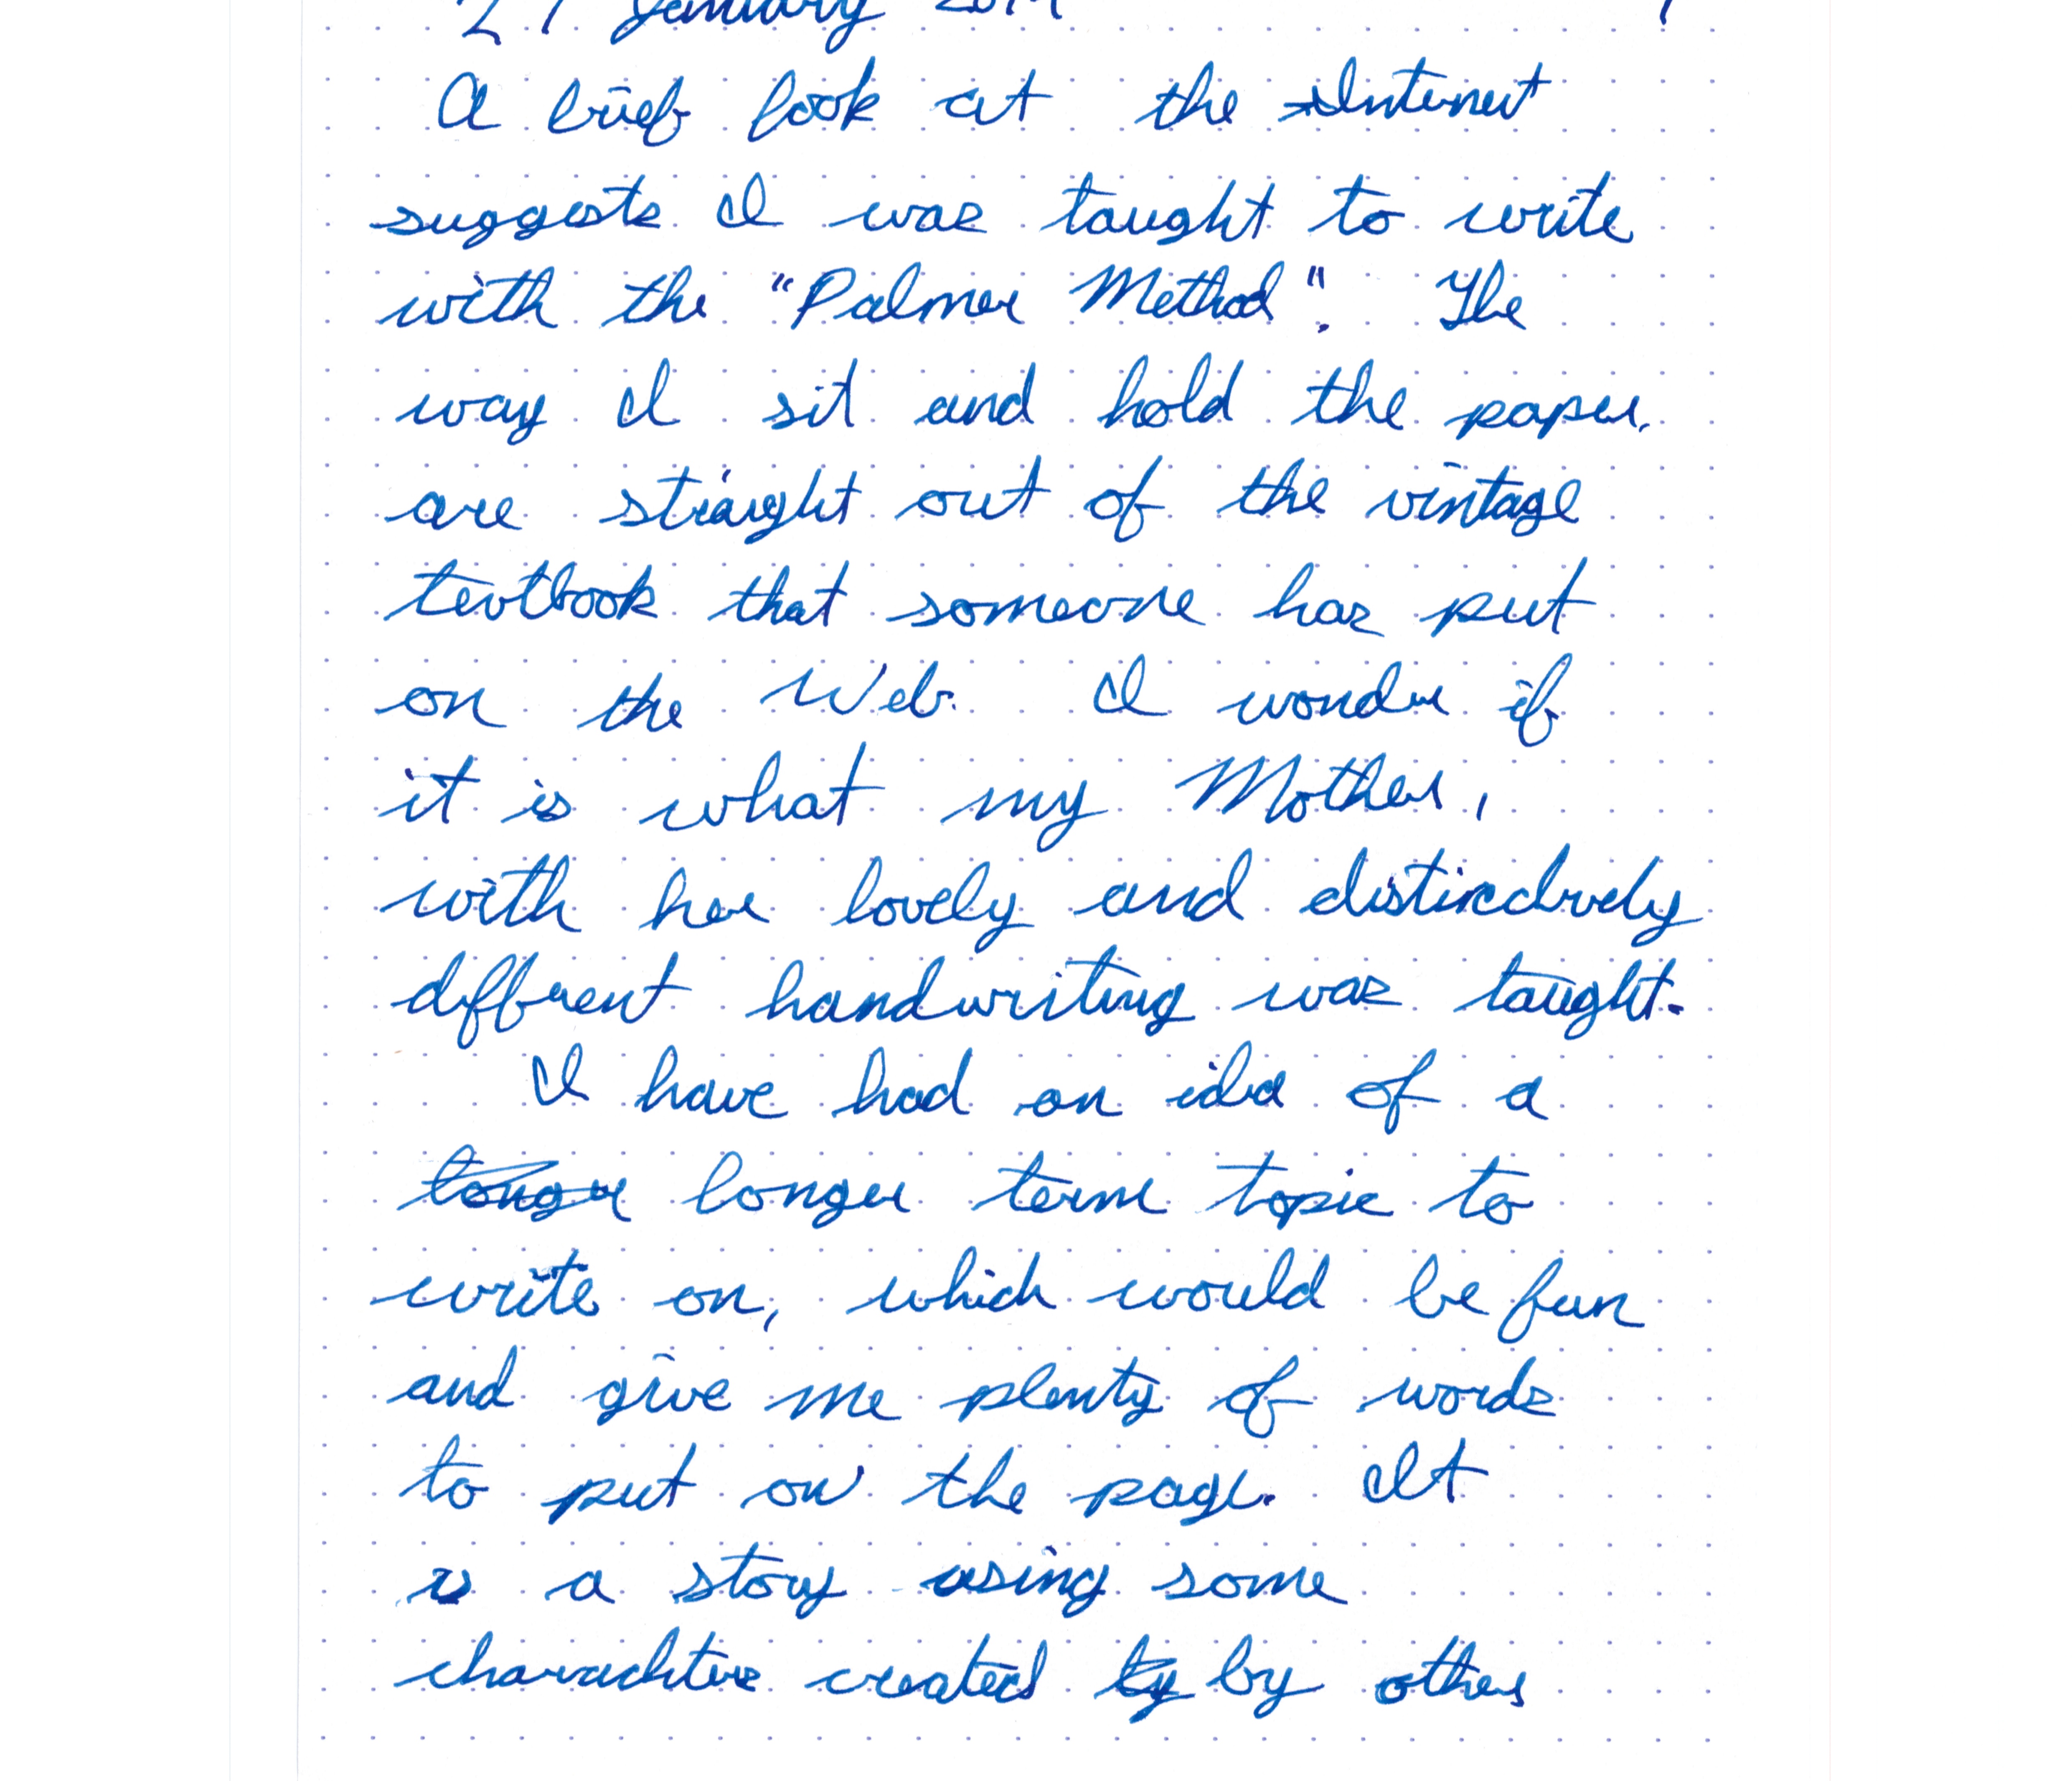 January
A brief look at the Internet
suggests I was taught to write
with the "Palmer Method". The
way I sit and hold the paper
are straight out of the vintage
textbook that someone has put
on the Web. I wonder if
it is what my Mother,
with her lovely and distinctively
different handwriting was taught.
I have had an idea of a
longer longer term topic to
write on, which would be fun
and give me plenty of words
to put on the page. It
is a story using some
charachters created by by others